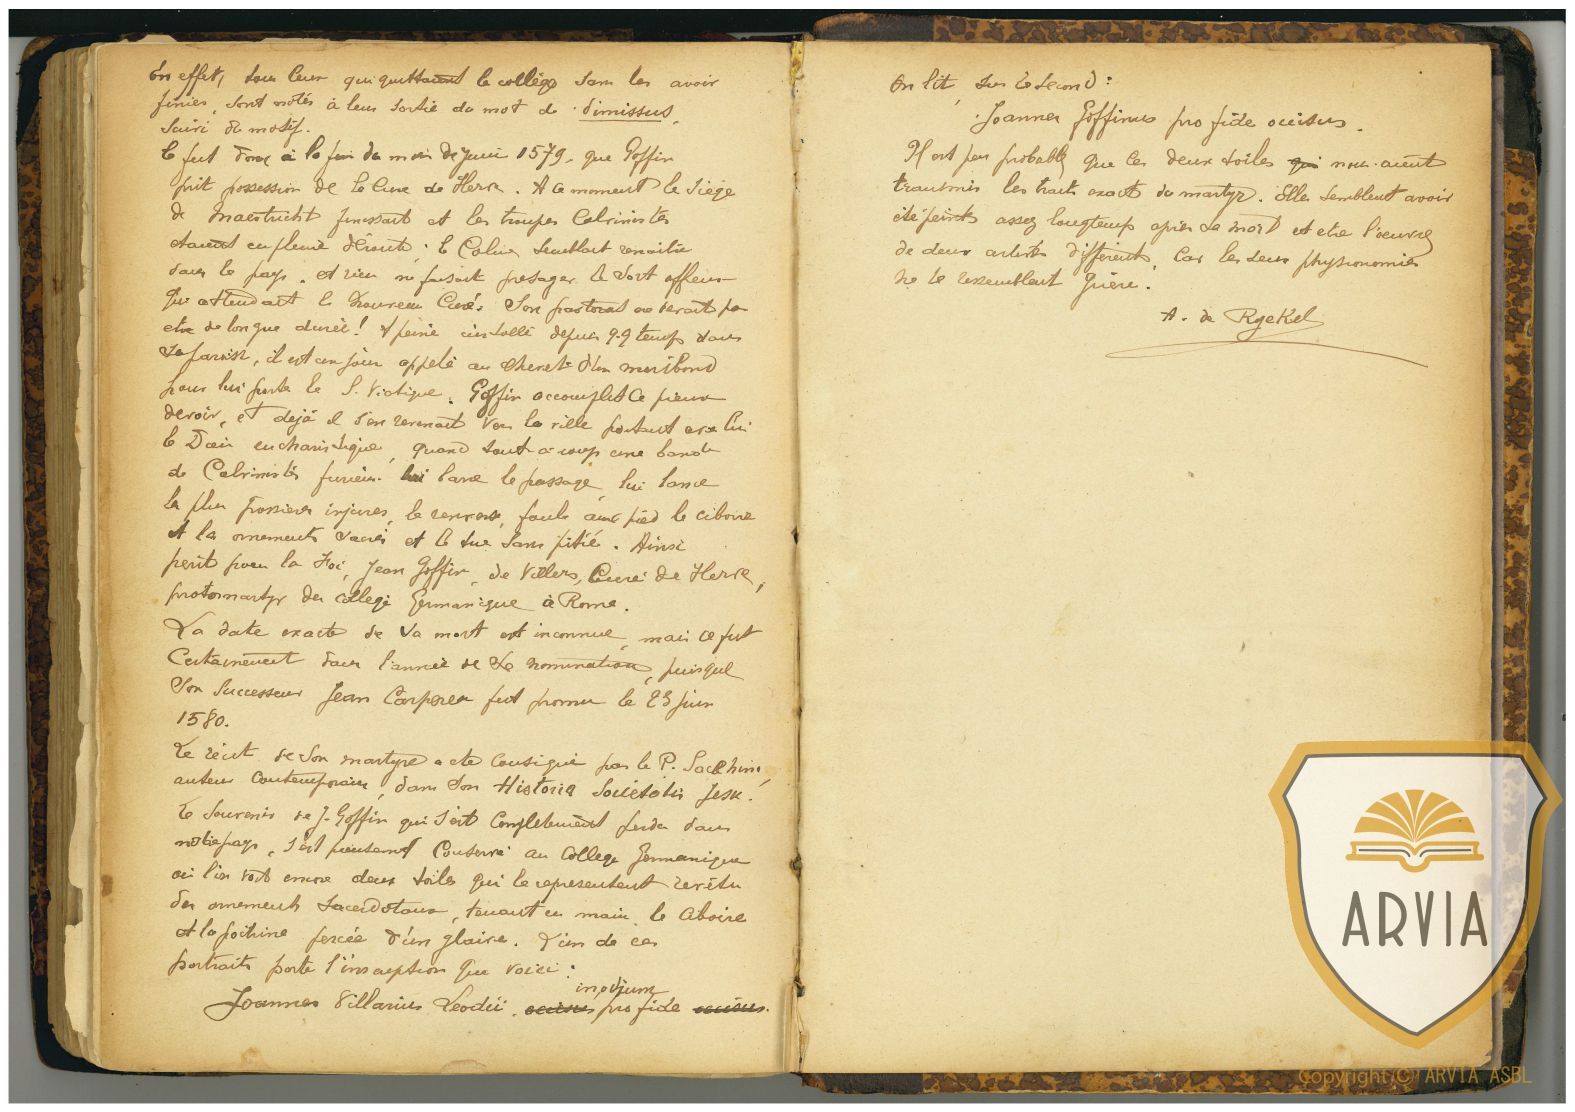 En effet, tous ceux qui quittaient le collège sans les avoir
finies, sont notés à leur sortie du mot de dimissus,
suivi du motif.
Ce fut donc à la fin du mois de juin 1579, que Goffin
prit possession de la Cure de Herve. A ce moment le siège
de Maestricht finissait et les troupes Calvinistes
étaient en pleine déroute; le Calme semblait renaître
dans le pays, et rien ne faisait presager le sort affreux
qui attendait le nouveau Curé. Son pastorat ne devait pas
etre de longue durée! A peine installé depuis qq temps dans
sa paroisse, il est un jour appelé au chevet d'un moribond
pour lui porter le S. Viatique. Goffin accomplit ce pieux
devoir, et déjà il s'en revenait vers la ville portant avec lui
le Pain eucharistique, quand tout à coup une bande
de Calvinistes furieux lui barre le passage, lui lance
les plus grossieres injures, le renverse, foule aux pied le ciboire
et les ornements sacrés et le tue sans pitié. Ainsi
perit pour la Foi, Jean Goffin, de Villers, Curé de Herve,
protomartyr du collège Germanique à Rome.
La date exacte de sa mort est inconnue, mais ce fut
Certainement dans l'année de sa nomination, puisque
son successeur Jean fut promu le 23 juin
1580.
Le récit de son martyre a ete consigné par le P. Sacchini,
auteur contemporain, dans son Historia Societatis Jesu.
Le souvenir de J. Goffin qui s'est complètement perdu dans
notre pays, s'est conservé au College Germanique
où l'on voit encore deux toiles qui le representent revêtu
des ornements sacerdotaux, tenant en main le Ciboire
et la poitrine percée d'un glaive. L'un de ces
portraits porte l'inscription que voici:
Joannes Villarius Leodii occisus pro fide occisus.
On lit, sur le second:
Joannes Goffinus pro fide occisus.
Il est peu probable que les deux toiles qui nous aient
transmis les traits exacts du martyr. Elles semblent avoir
été peints assez longtemps après sa mort et etre l'oeuvre
de deux artistes différents, car les deux physionomies
ne se ressemblent guère.
A. de Ryckel
ARVIA
Copyright © ARVIA ASBL